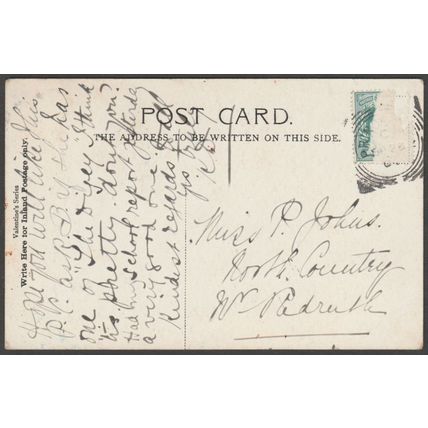 POST CARD.
THE ADDRESS TO BE WRITTEN ON THIS SIDE.
Valentine's Series
Write Here for Inland Postage only.
Hope you will like this
P.C. ask B if she has
one of I think
its pretty don't you?
Had my School report yesterday
a very good one
Kindest regards to all
Miss P. Johns.
North Country
Nr Redruth